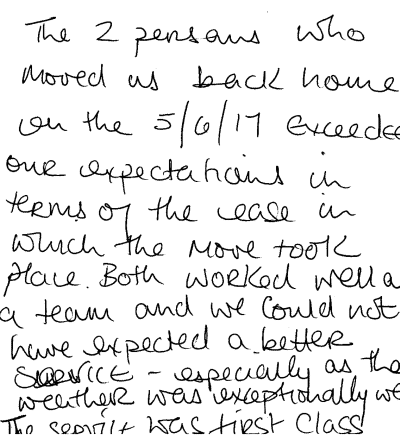 The 2 persons who
moved us back home
on the 5/6/17 exceede
our expectations in
terms of the ease in
which the move took
place. Both worked well a
a team and we could not
have expected a better
service - especially as the
weather was exceptionally we
The service was first class